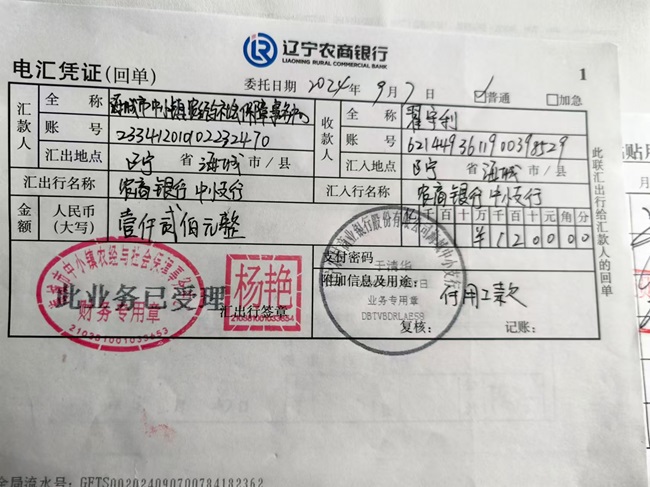 辽宁农商银行
LIAONING RURAL COMMERCIAL BANK
1
电汇凭证(回单) 委托日期 2024年 9月 7日 ☑普通 □加急
汇款人 全称 海城市中小镇农经与社会保障事务中心 收款人 全称
账号 2334120101022232470 账号 6214493611900398529
汇出地点 辽宁 省 海城 市/县 汇入地点 辽宁 省 海城 市/县
汇出行名称 农商银行中小支行 汇入行名称 农商银行中小支行
金额 人民币(大写) 壹仟贰佰元整 千百十万千百十元角分
¥120000
支付密码
附加信息及用途:
付用工款
此业务已受理
汇出行签章
复核: 记账:
财务专用章
210381001035453
杨艳
于清华
业务专用章
DBTVBDRLAES8
此联汇出行给汇款人的回单
粘贴用
全局流水号: GETS002024090700784182362